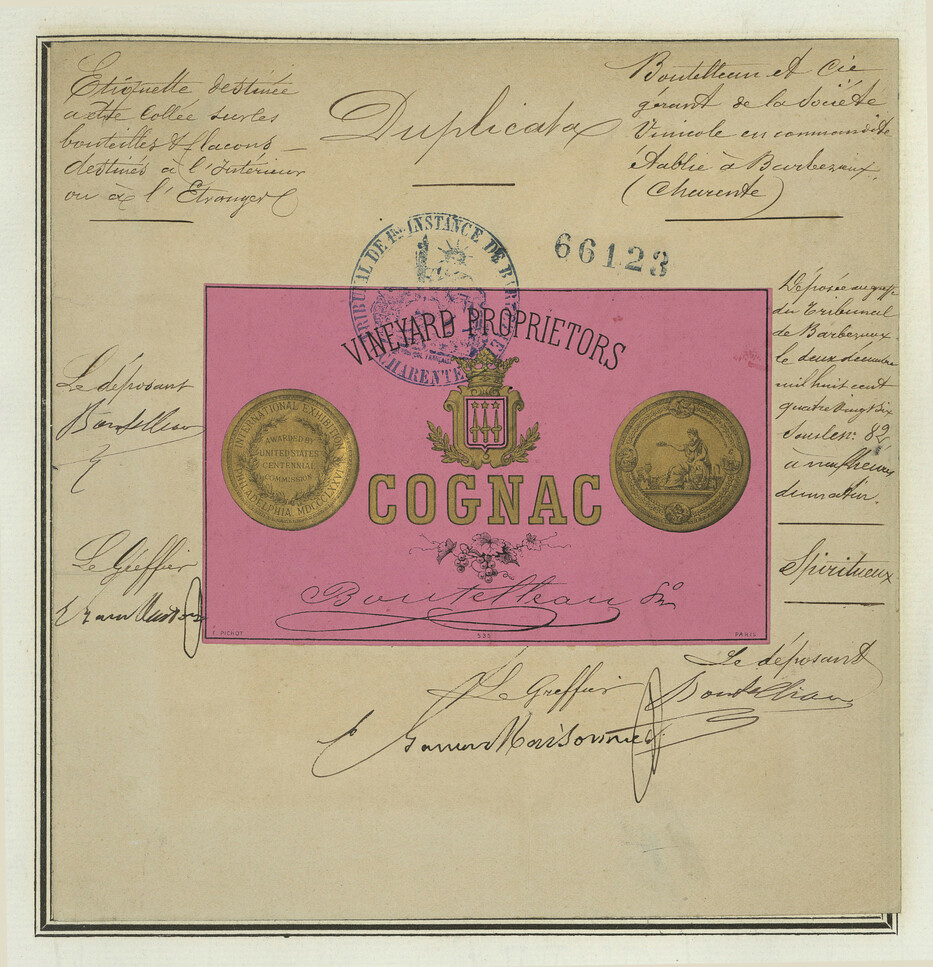 Etiquette destinée
a être collée sur les
bouteilles & flacons
destinés à l'Intérieur
ou à l'Etranger
Duplicata
Boutelleau et Cie
gérant de la Société
Vinicole en commandite
établie à Barbezieux
(Charente)
TRIBUNAL DE 1re INSTANCE DE BAR
CHARENTE
66123
Déposée au greffe
du Tribunal
de Barbezieux
le deux décembre
mil huit cent
quatre vingt six
sous le n° 82
à neuf heures
du matin.
Spiritueux
Le déposant
Boutelleau
Le Greffier
VINEYARD PROPRIETORS
INTERNATIONAL EXHIBITION
PHILADELPHIA MDCCCLXXVI
AWARDED BY
UNITED STATES
CENTENNIAL
COMMISSION
COGNAC
Boutelleau
F. PICHOT
535
PARIS
Le déposant
Boutelleau
Le Greffier